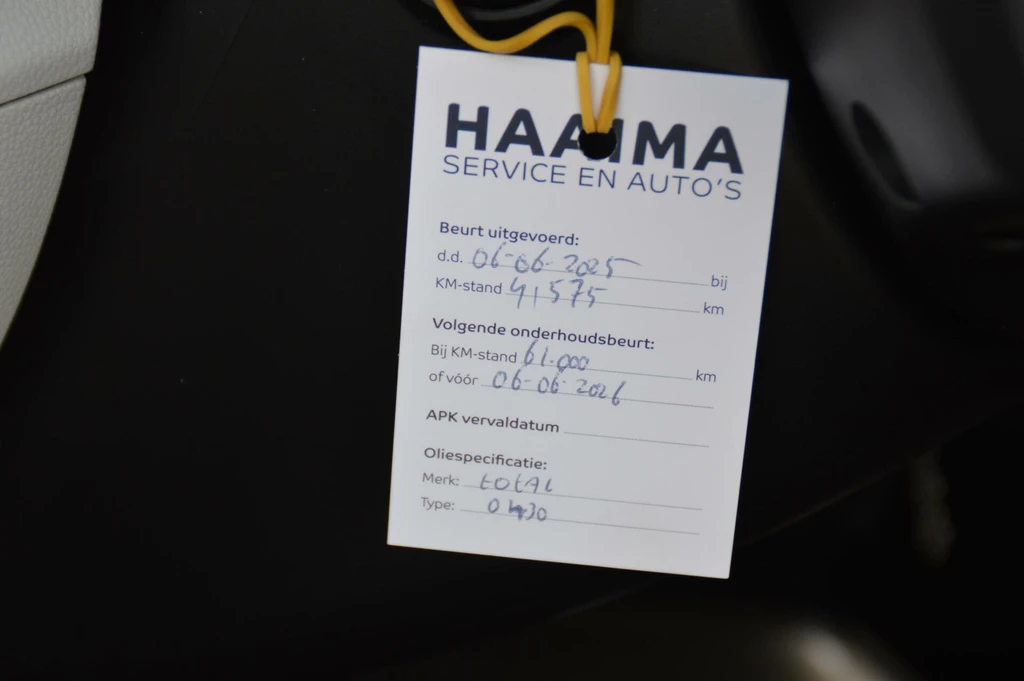 HAAIMA
SERVICE EN AUTO'S
Beurt uitgevoerd:
d.d. 06-06-2025 bij
KM-stand 41575 km
Volgende onderhoudsbeurt:
Bij KM-stand 61.000 km
of vóór 06-06-2026
APK vervaldatum
Oliespecificatie:
Merk: total
Type: 0W30